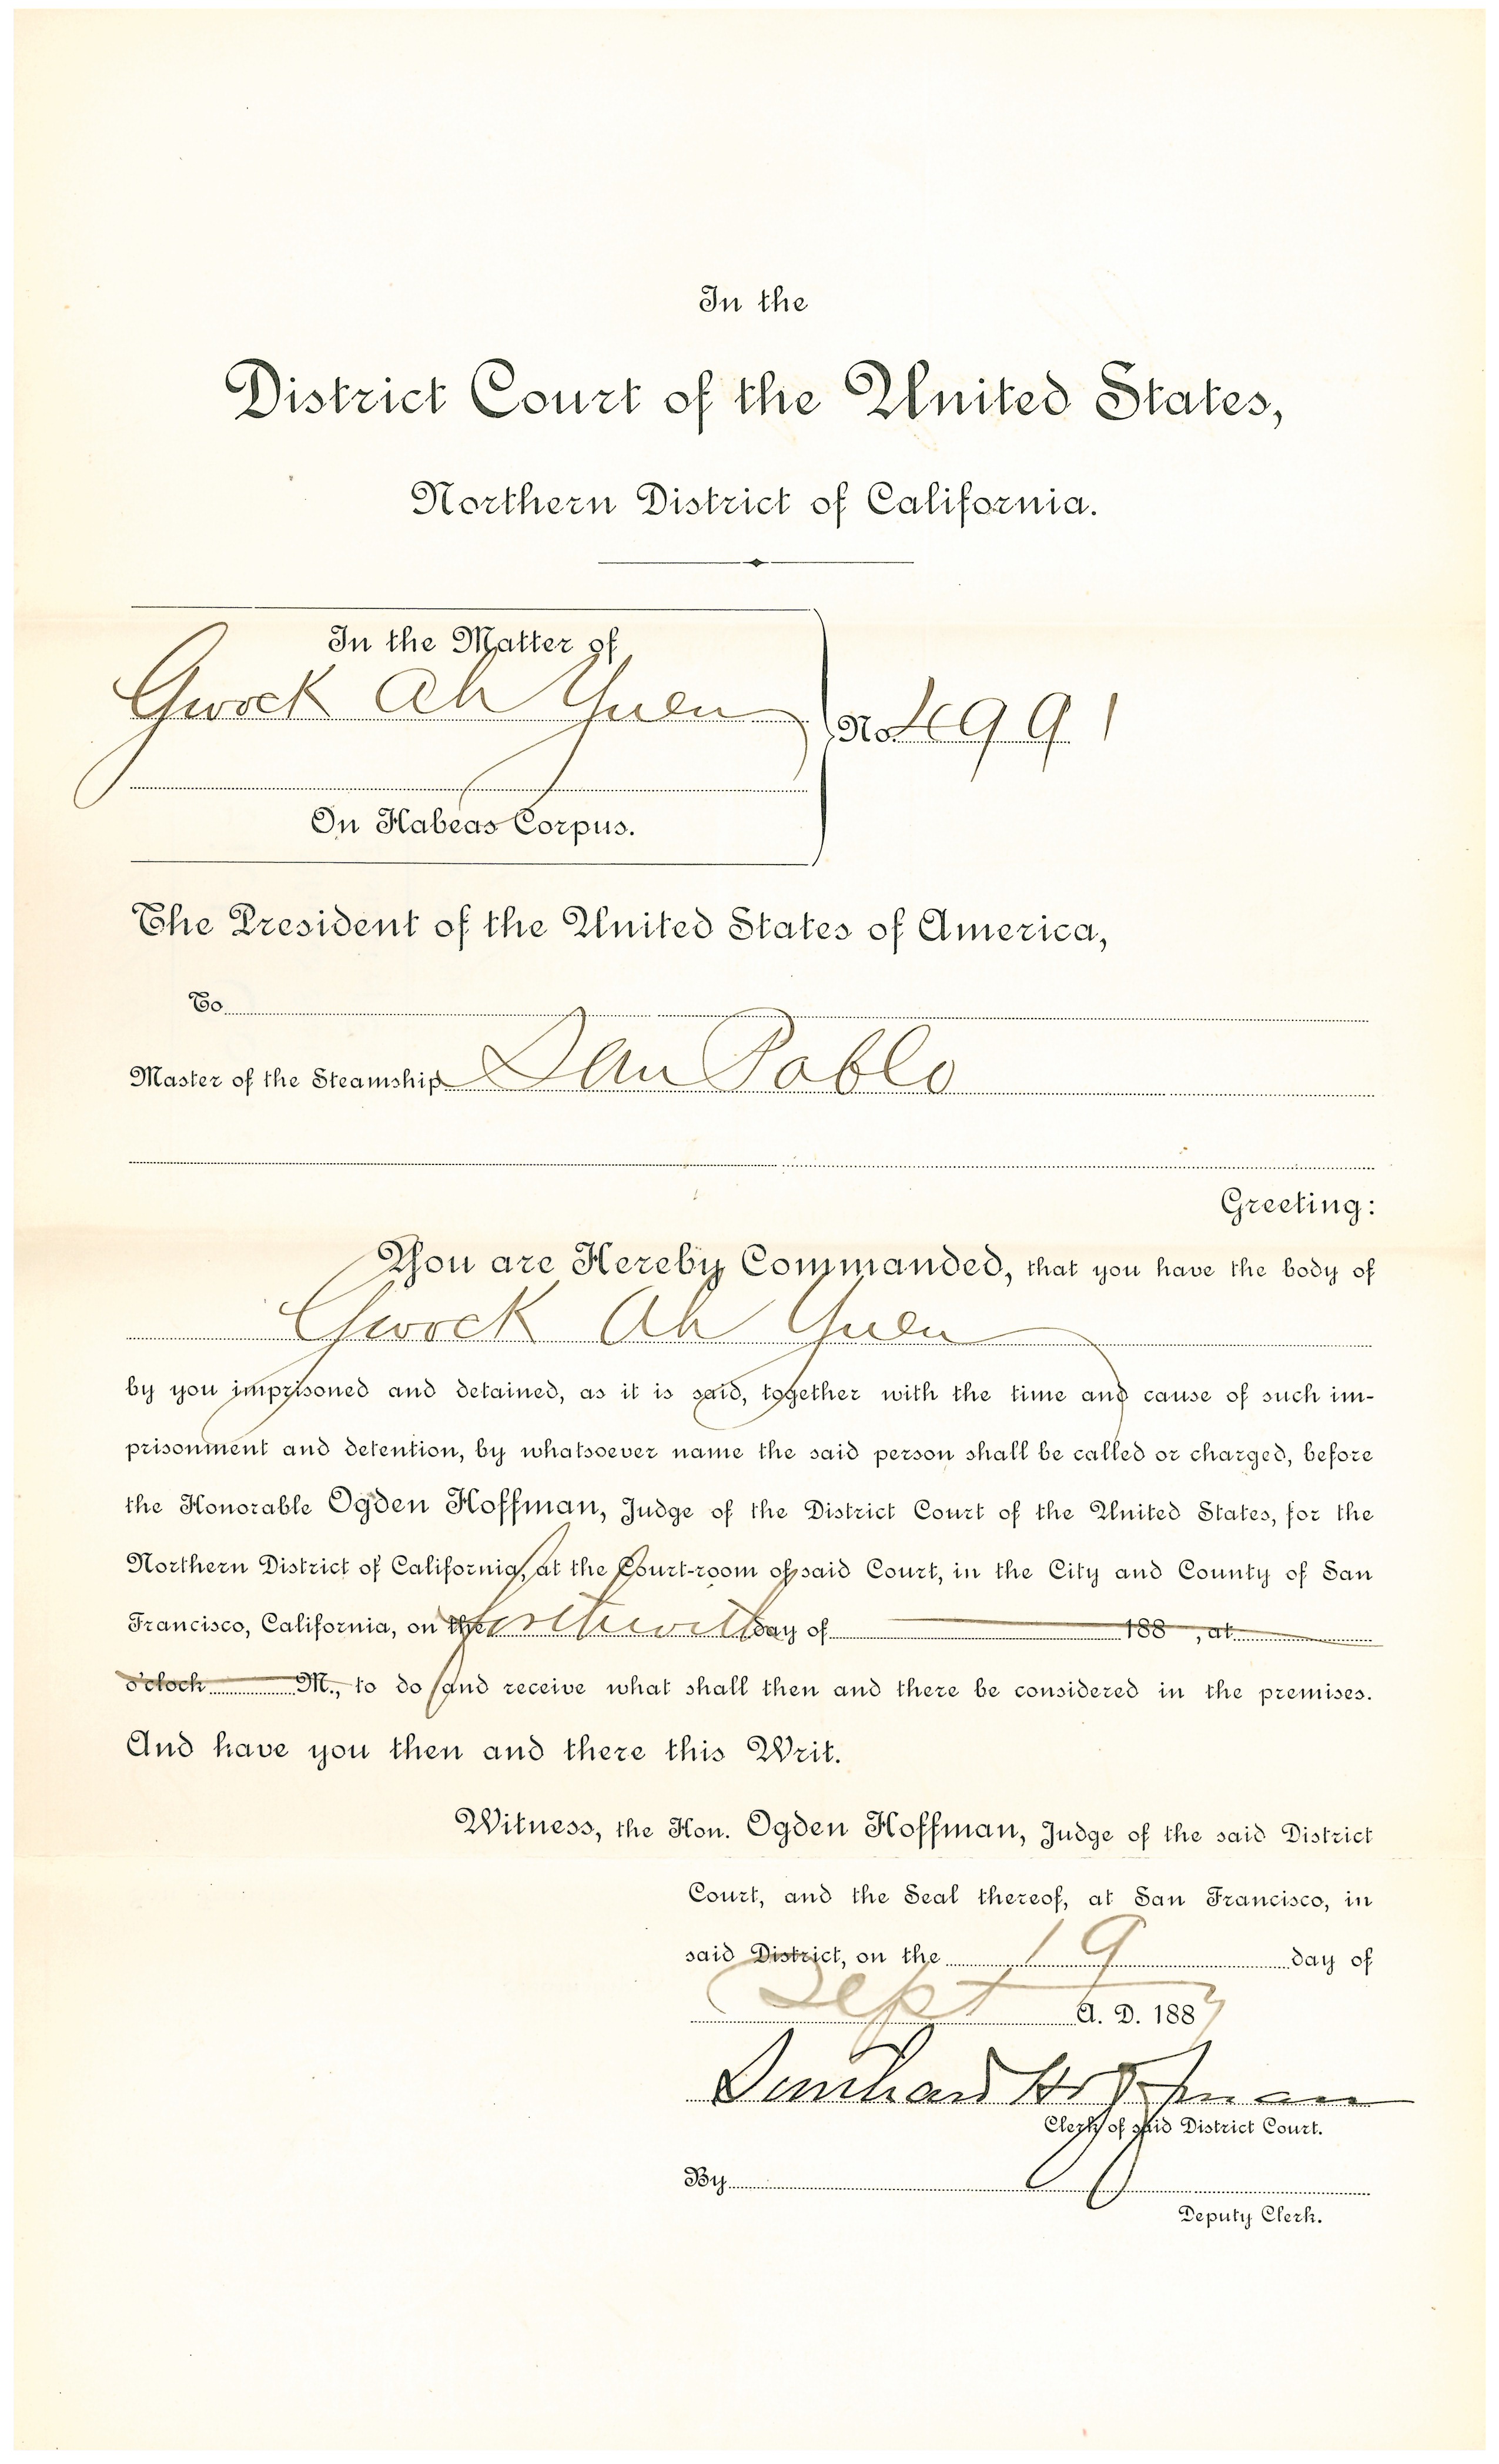 In the
District Court of the United States,
Northern District of California.
In the Matter of
Gwock Ah Yuen
No. 4991
On Habeas Corpus.
The President of the United States of America,
To
Master of the Steamship San Pablo
Greeting:
You are Hereby Commanded, that you have the body of
Gwock Ah Yuen
by you imprisoned and detained, as it is said, together with the time and cause of such im-
prisonment and detention, by whatsoever name the said person shall be called or charged, before
the Honorable Ogden Hoffman, Judge of the District Court of the United States, for the
Northern District of California, at the Court-room of said Court, in the City and County of San
Francisco, California, on the forthwith day of 188 , at
o'clock M., to do and receive what shall then and there be considered in the premises.
And have you then and there this Writ.
Witness, the Hon. Ogden Hoffman, Judge of the said District
Court, and the Seal thereof, at San Francisco, in
said District, on the 19 day of
Sept A. D. 1887
Southard Hoffman
Clerk of said District Court.
By
Deputy Clerk.